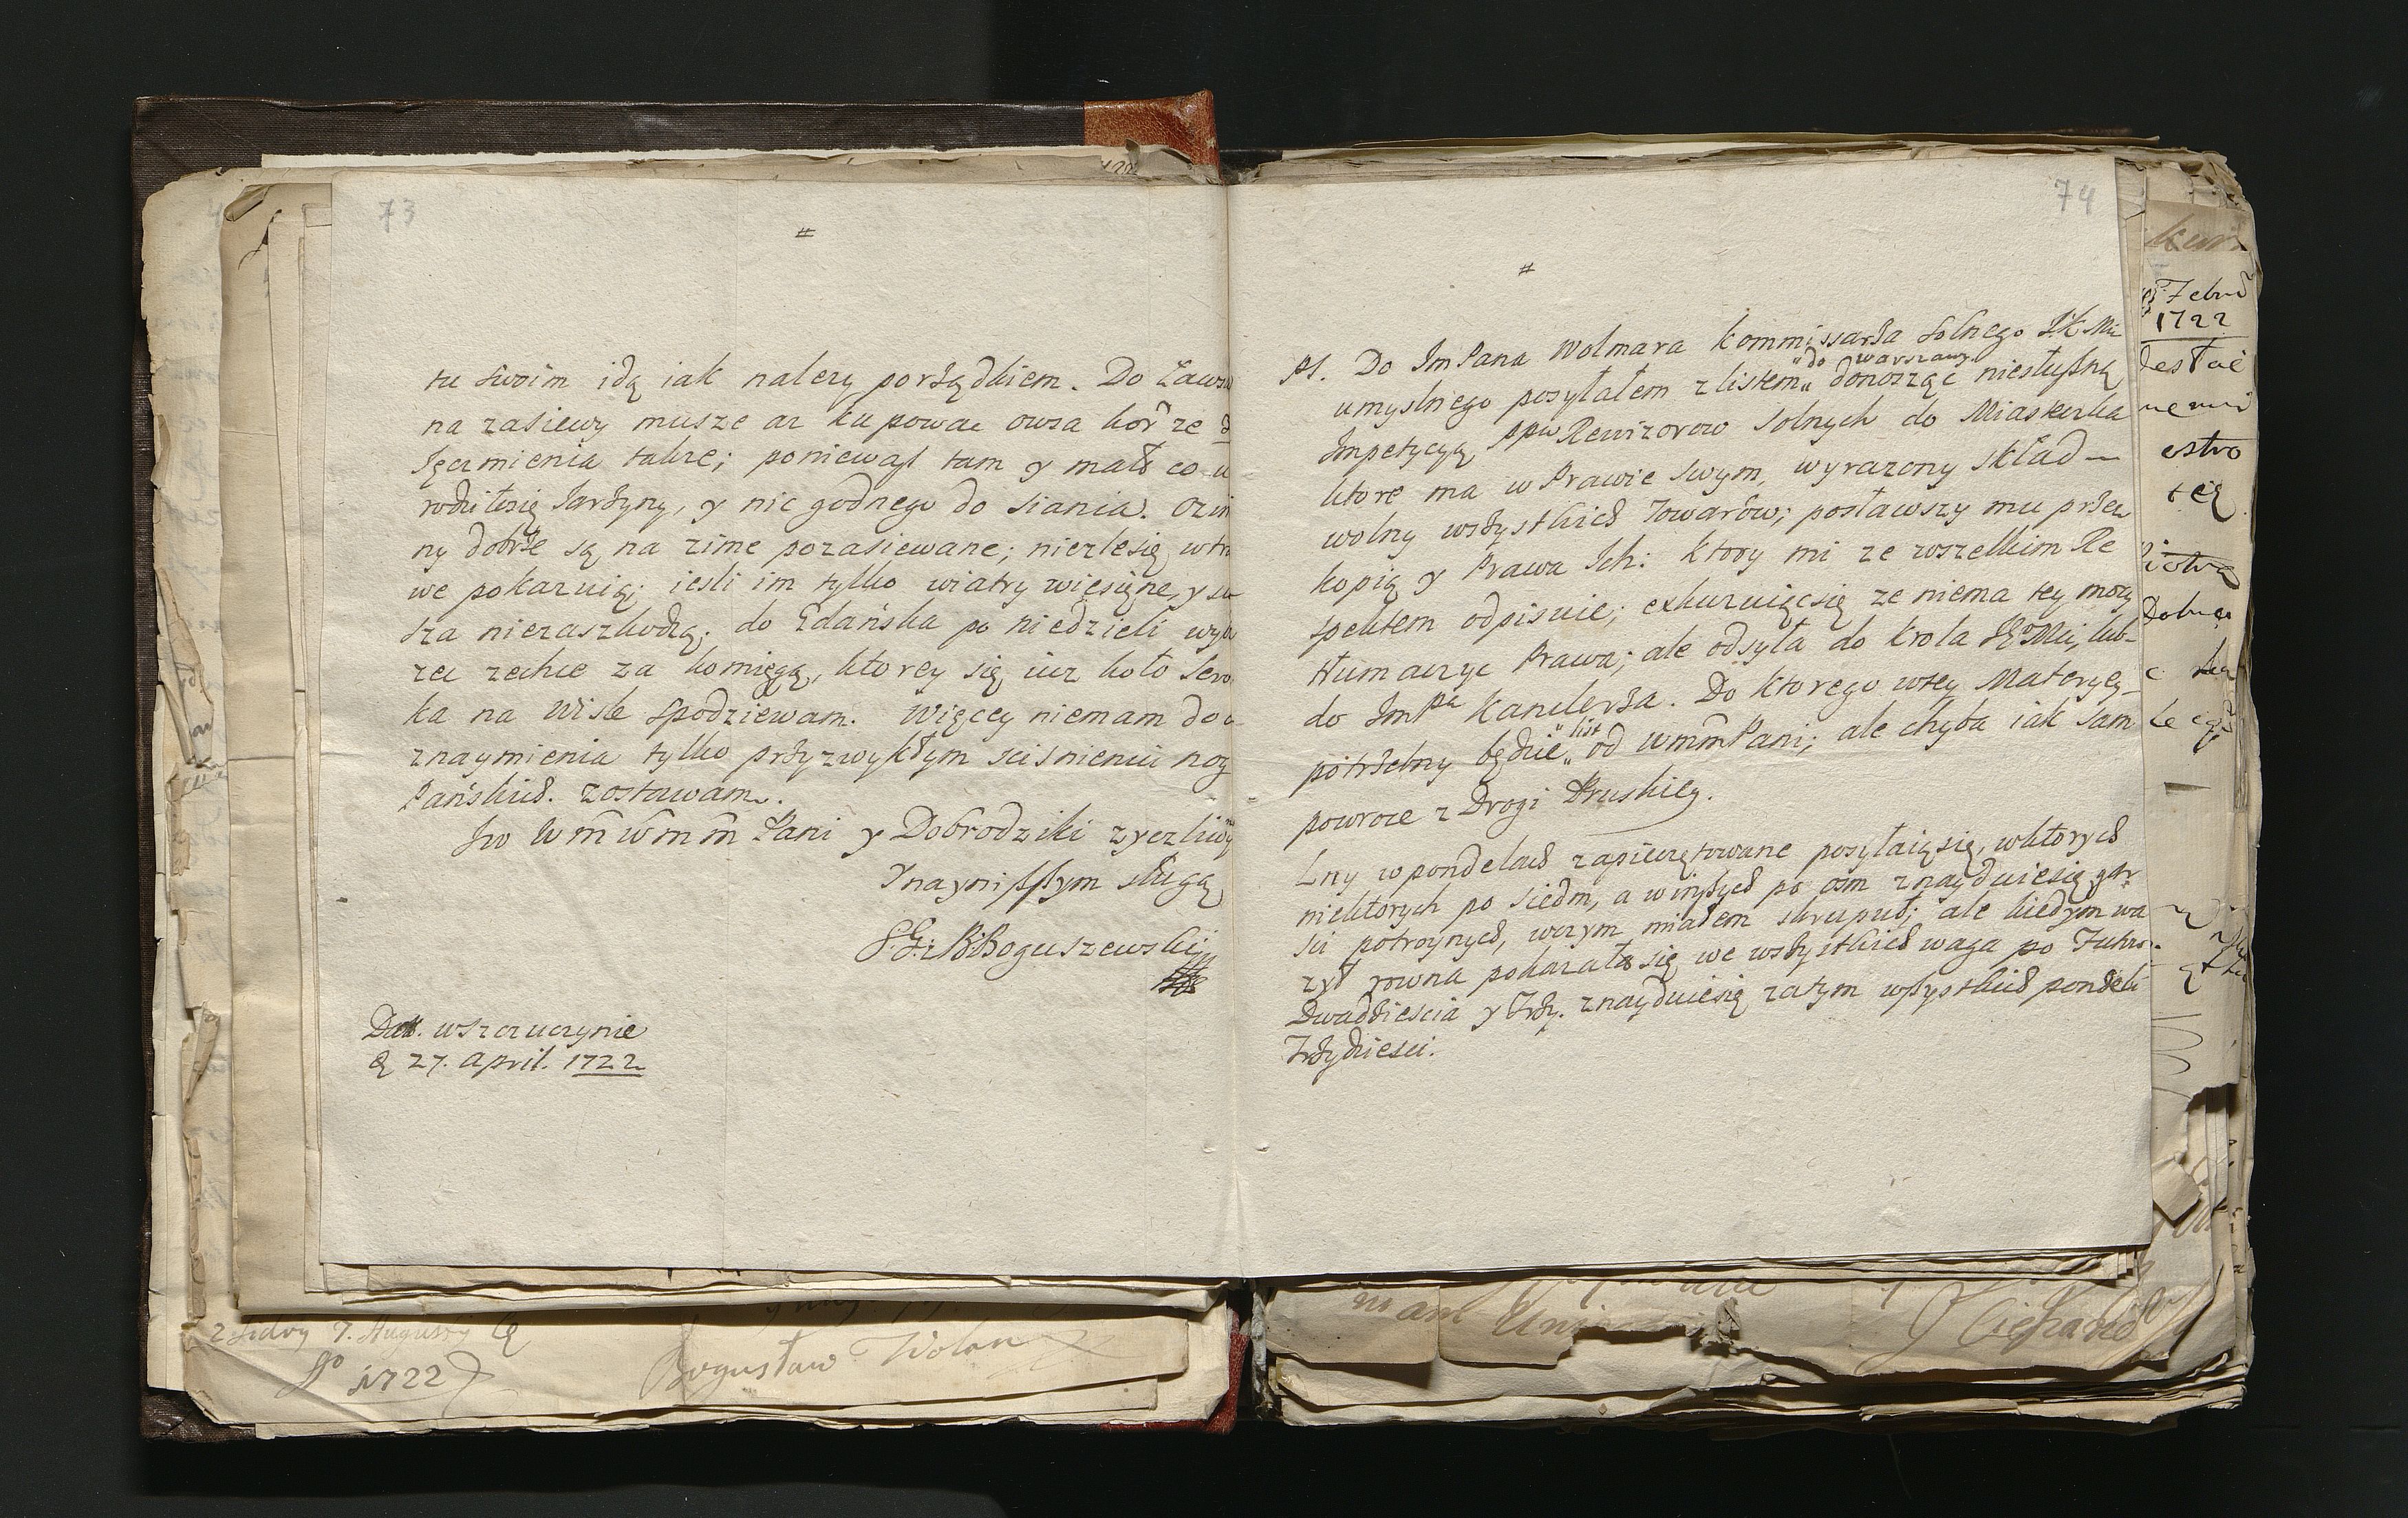 73
#
tu swoim idą iak nalezy porządkiem. Do
na zasiewy musze az kupowac owsa
Jęczmienia takze; poniewasz tam y mało co u
rodziłosię Jarzyny, y nic godnego do siania. Ozim
ny dobrze są na zime pozasiewane; niezlesię
we pokazuią; iesli im tylko wiatry wiesięne, y su
sza niezaszkodzą. do Gdańska po niedzieli
zechce za komięgą, ktorey się iuz koło
ka na Wisle spodziewam. Więcey niemam do o
znaymienia tylko przyzwykłym scisnieniu nog
Pańskich. zostawam.
Jwo Wm̃ wm̃m̃ Pani y Dobrodziki zyczliwy
Ynayniszszym sługą
Boguszewski
Dat. wSzczuczynie
27. April. 1722
74
#
PS. Do ImPana Wolmara Kommissarza solnego JKMci
umyslnego posyłałem zlistem „do warszawy„ donosząc niesłuszną
Impetycyą ppw Rewizorow solnych do Miaskurka
ktore ma w Prawie swym, wyrazony skład
wolny wszystkich Towarów; posławszy mu przez
kopią y Prawa Ich: Ktory mi ze wszelkim Re
spektem odpisuie; exkuzuiącsię ze niema tey mocy
tłumaczyc Prawa; ale odsyła do Krola JgoMci, lub
do ImPa Kanclerza. Do Ktorego wtey Materyey
potrzebny będzie „list„ od wmm̃Pani; ale chyba iak sam
powroce z Drogi Pruskiey.
Lny wpondelach zapieczętowane posyłaiąsię, wktorych
niektorych po siedm, a winszych po osm znayduiesię gar
sci potroynych, wczym miałem skrupuł; ale kiedym wa
zył rowna pokazała się we wszystkich waga po Funtow
Dwadziescia y Trzy. znayduiesię zatym wszystkich pondeli
Trzydziesci.
1722
estwo
7. Augusti
1722
Bogusław